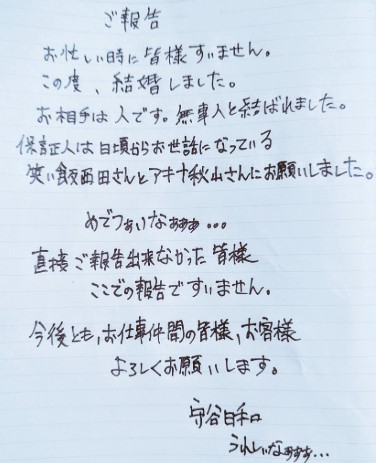 ご報告
お忙しい時に皆様すいません。
この度、結婚しました。
お相手は人です。無事人と結ばれました。
保証人は日頃からお世話になっている
笑い飯西田さんとアキナ秋山さんにお願いしました。
めでてぁいなぁぁぁ…
直接ご報告出来なかった皆様
ここでの報告ですいません。
今後とも、お仕事仲間の皆様、お客様
よろしくお願いします。
守谷日和
うれしいなぁぁぁ…